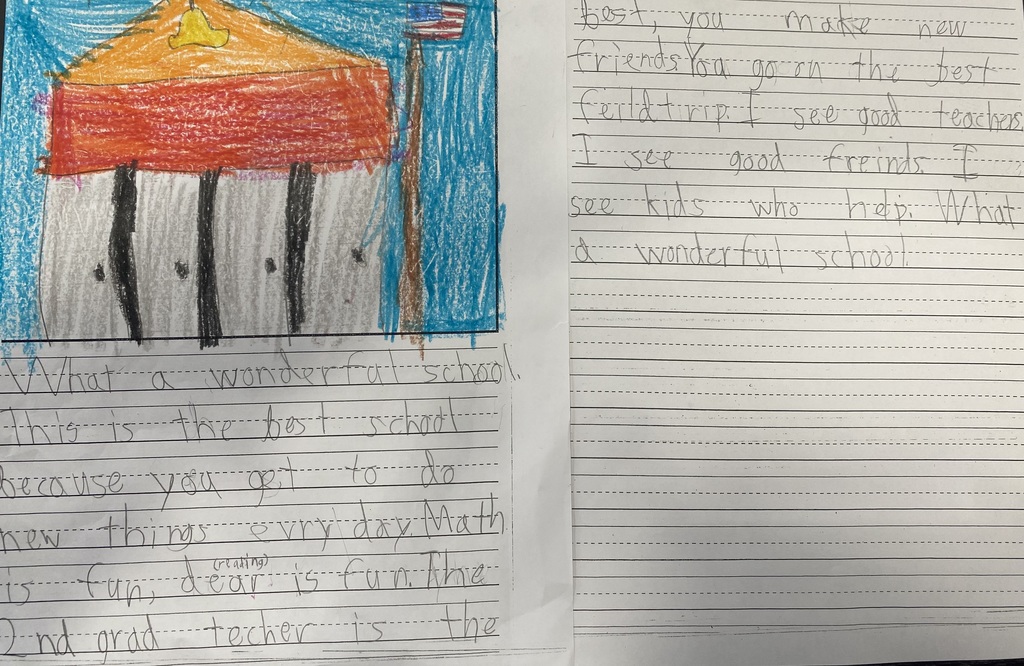 What a wonderful school.
This is the best school
because you get to do
new things evry day. Math
(reading)
is fun, dear is fun. The
2nd grad techer is the
best, you make new
friends You go on the best
feild trip. I see good teachers
I see good freinds. I
see kids who help. What
a wonderful school.